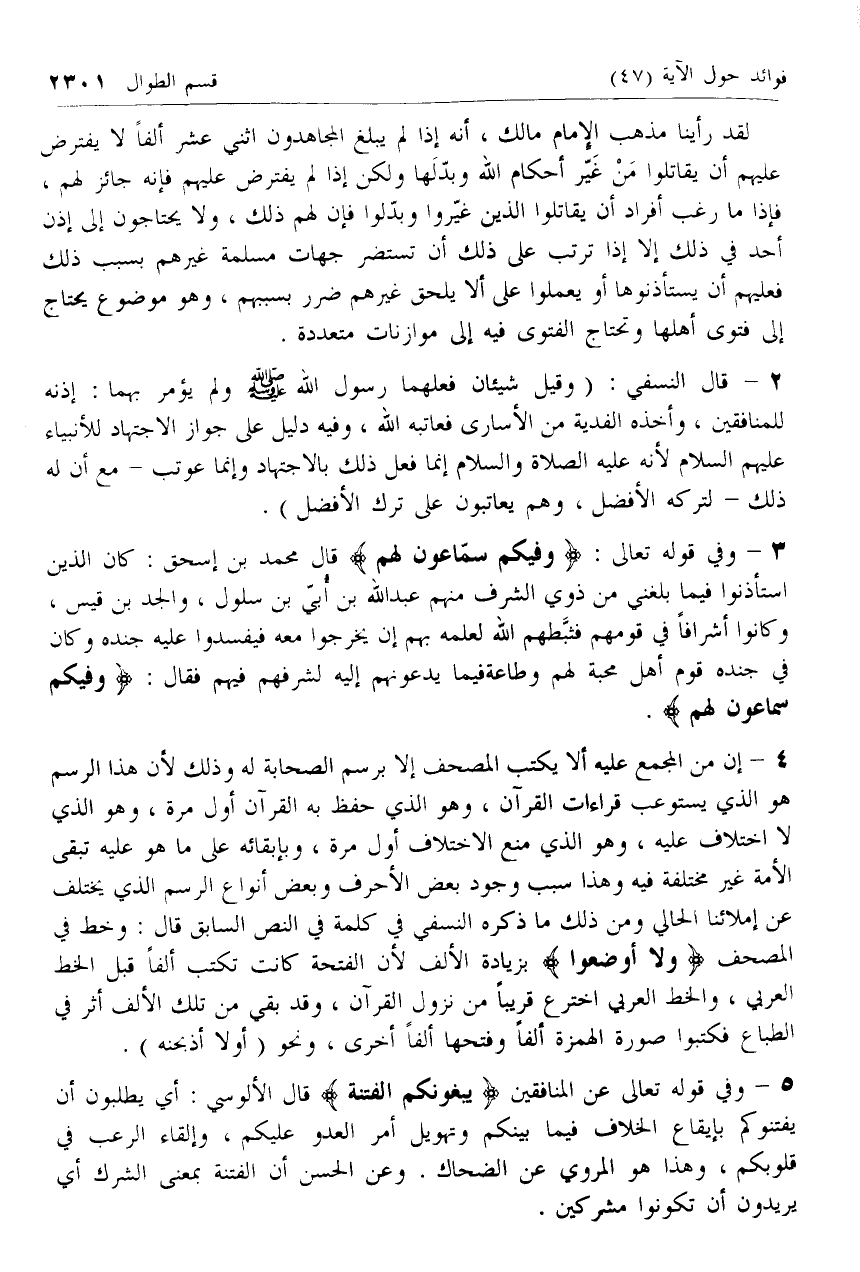 فوائد حول الآية (٤٧) قسم الطوال ٢٣٠١
لقد رأينا مذهب الإمام مالك ، أنه إذا لم يبلغ المجاهدون اثني عشر ألفاً لا يفترض
عليهم أن يقاتلوا مَنْ غَيّر أحكام الله وبدّلَها ولكن إذا لم يفترض عليهم فإنه جائز لهم ،
فإذا ما رغب أفراد أن يقاتلوا الذين غيّروا وبدّلوا فإن لهم ذلك ، ولا يحتاجون إلى إذن
أحد في ذلك إلا إذا ترتب على ذلك أن تستضر جهات مسلمة غيرهم بسبب ذلك
فعليهم أن يستأذنوها أو يعملوا على ألا يلحق غيرهم ضرر بسببهم ، وهو موضوع يحتاج
إلى فتوى أهلها وتحتاج الفتوى فيه إلى موازنات متعددة .
٢ – قال النسفي : ( وقيل شيئان فعلهما رسول الله ﷺ ولم يؤمر بهما : إذنه
للمنافقين ، وأخذه الفدية من الأسارى فعاتبه الله ، وفيه دليل على جواز الاجتهاد للأنبياء
عليهم السلام لأنه عليه الصلاة والسلام إنما فعل ذلك بالاجتهاد وإنما عوتب – مع أن له
ذلك – لتركه الأفضل ، وهم يعاتبون على ترك الأفضل ) .
٣ – وفي قوله تعالى : ﴿ وفيكم سمّاعون لهم ﴾ قال محمد بن إسحق : كان الذين
استأذنوا فيما بلغني من ذوي الشرف منهم عبدالله بن أُبيّ بن سلول ، والجد بن قيس ،
وكانوا أشرافاً في قومهم فثبَّطهم الله لعلمه بهم إن يخرجوا معه فيفسدوا عليه جنده وكان
في جنده قوم أهل محبة لهم وطاعةفيما يدعونهم إليه لشرفهم فيهم فقال : ﴿ وفيكم
سماعون لهم ﴾ .
٤ – إن من المجمع عليه ألا يكتب المصحف إلا برسم الصحابة له وذلك لأن هذا الرسم
هو الذي يستوعب قراءات القرآن ، وهو الذي حفظ به القرآن أول مرة ، وهو الذي
لا اختلاف عليه ، وهو الذي منع الاختلاف أول مرة ، وبإبقائه على ما هو عليه تبقى
الأمة غير مختلفة فيه وهذا سبب وجود بعض الأحرف وبعض أنواع الرسم الذي يختلف
عن إملائنا الحالي ومن ذلك ما ذكره النسفي في كلمة في النص السابق قال : وخط في
المصحف ﴿ ولا أوضعوا ﴾ بزيادة الألف لأن الفتحة كانت تكتب ألفاً قبل الخط
العربي ، والخط العربي اخترع قريباً من نزول القرآن ، وقد بقي من تلك الألف أثر في
الطباع فكتبوا صورة الهمزة ألفاً وفتحها ألفاً أخرى ، ونحو ( أولا أذبحنه ) .
٥ – وفي قوله تعالى عن المنافقين ﴿ يبغونكم الفتنة ﴾ قال الألوسي : أي يطلبون أن
يفتنوكم بإيقاع الخلاف فيما بينكم وتهويل أمر العدو عليكم ، وإلقاء الرعب في
قلوبكم ، وهذا هو المروي عن الضحاك . وعن الحسن أن الفتنة بمعنى الشرك أي
يريدون أن تكونوا مشركين .